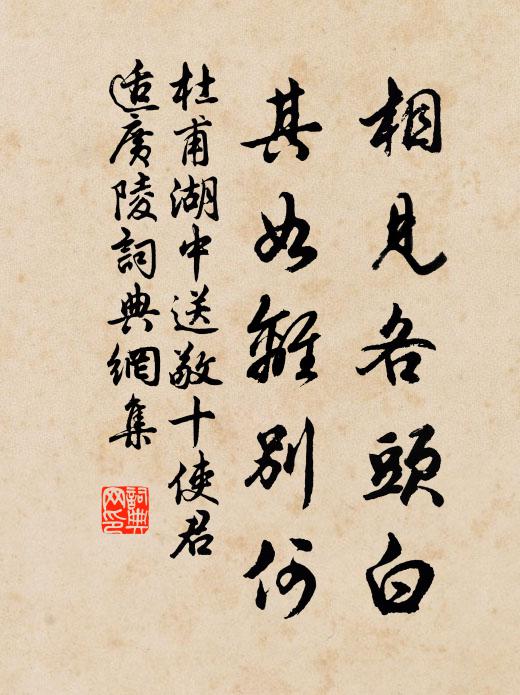 相見各頭白
其如離別何
杜甫湖中送敬十使君
适廣陵詞典網集
詞典
网印